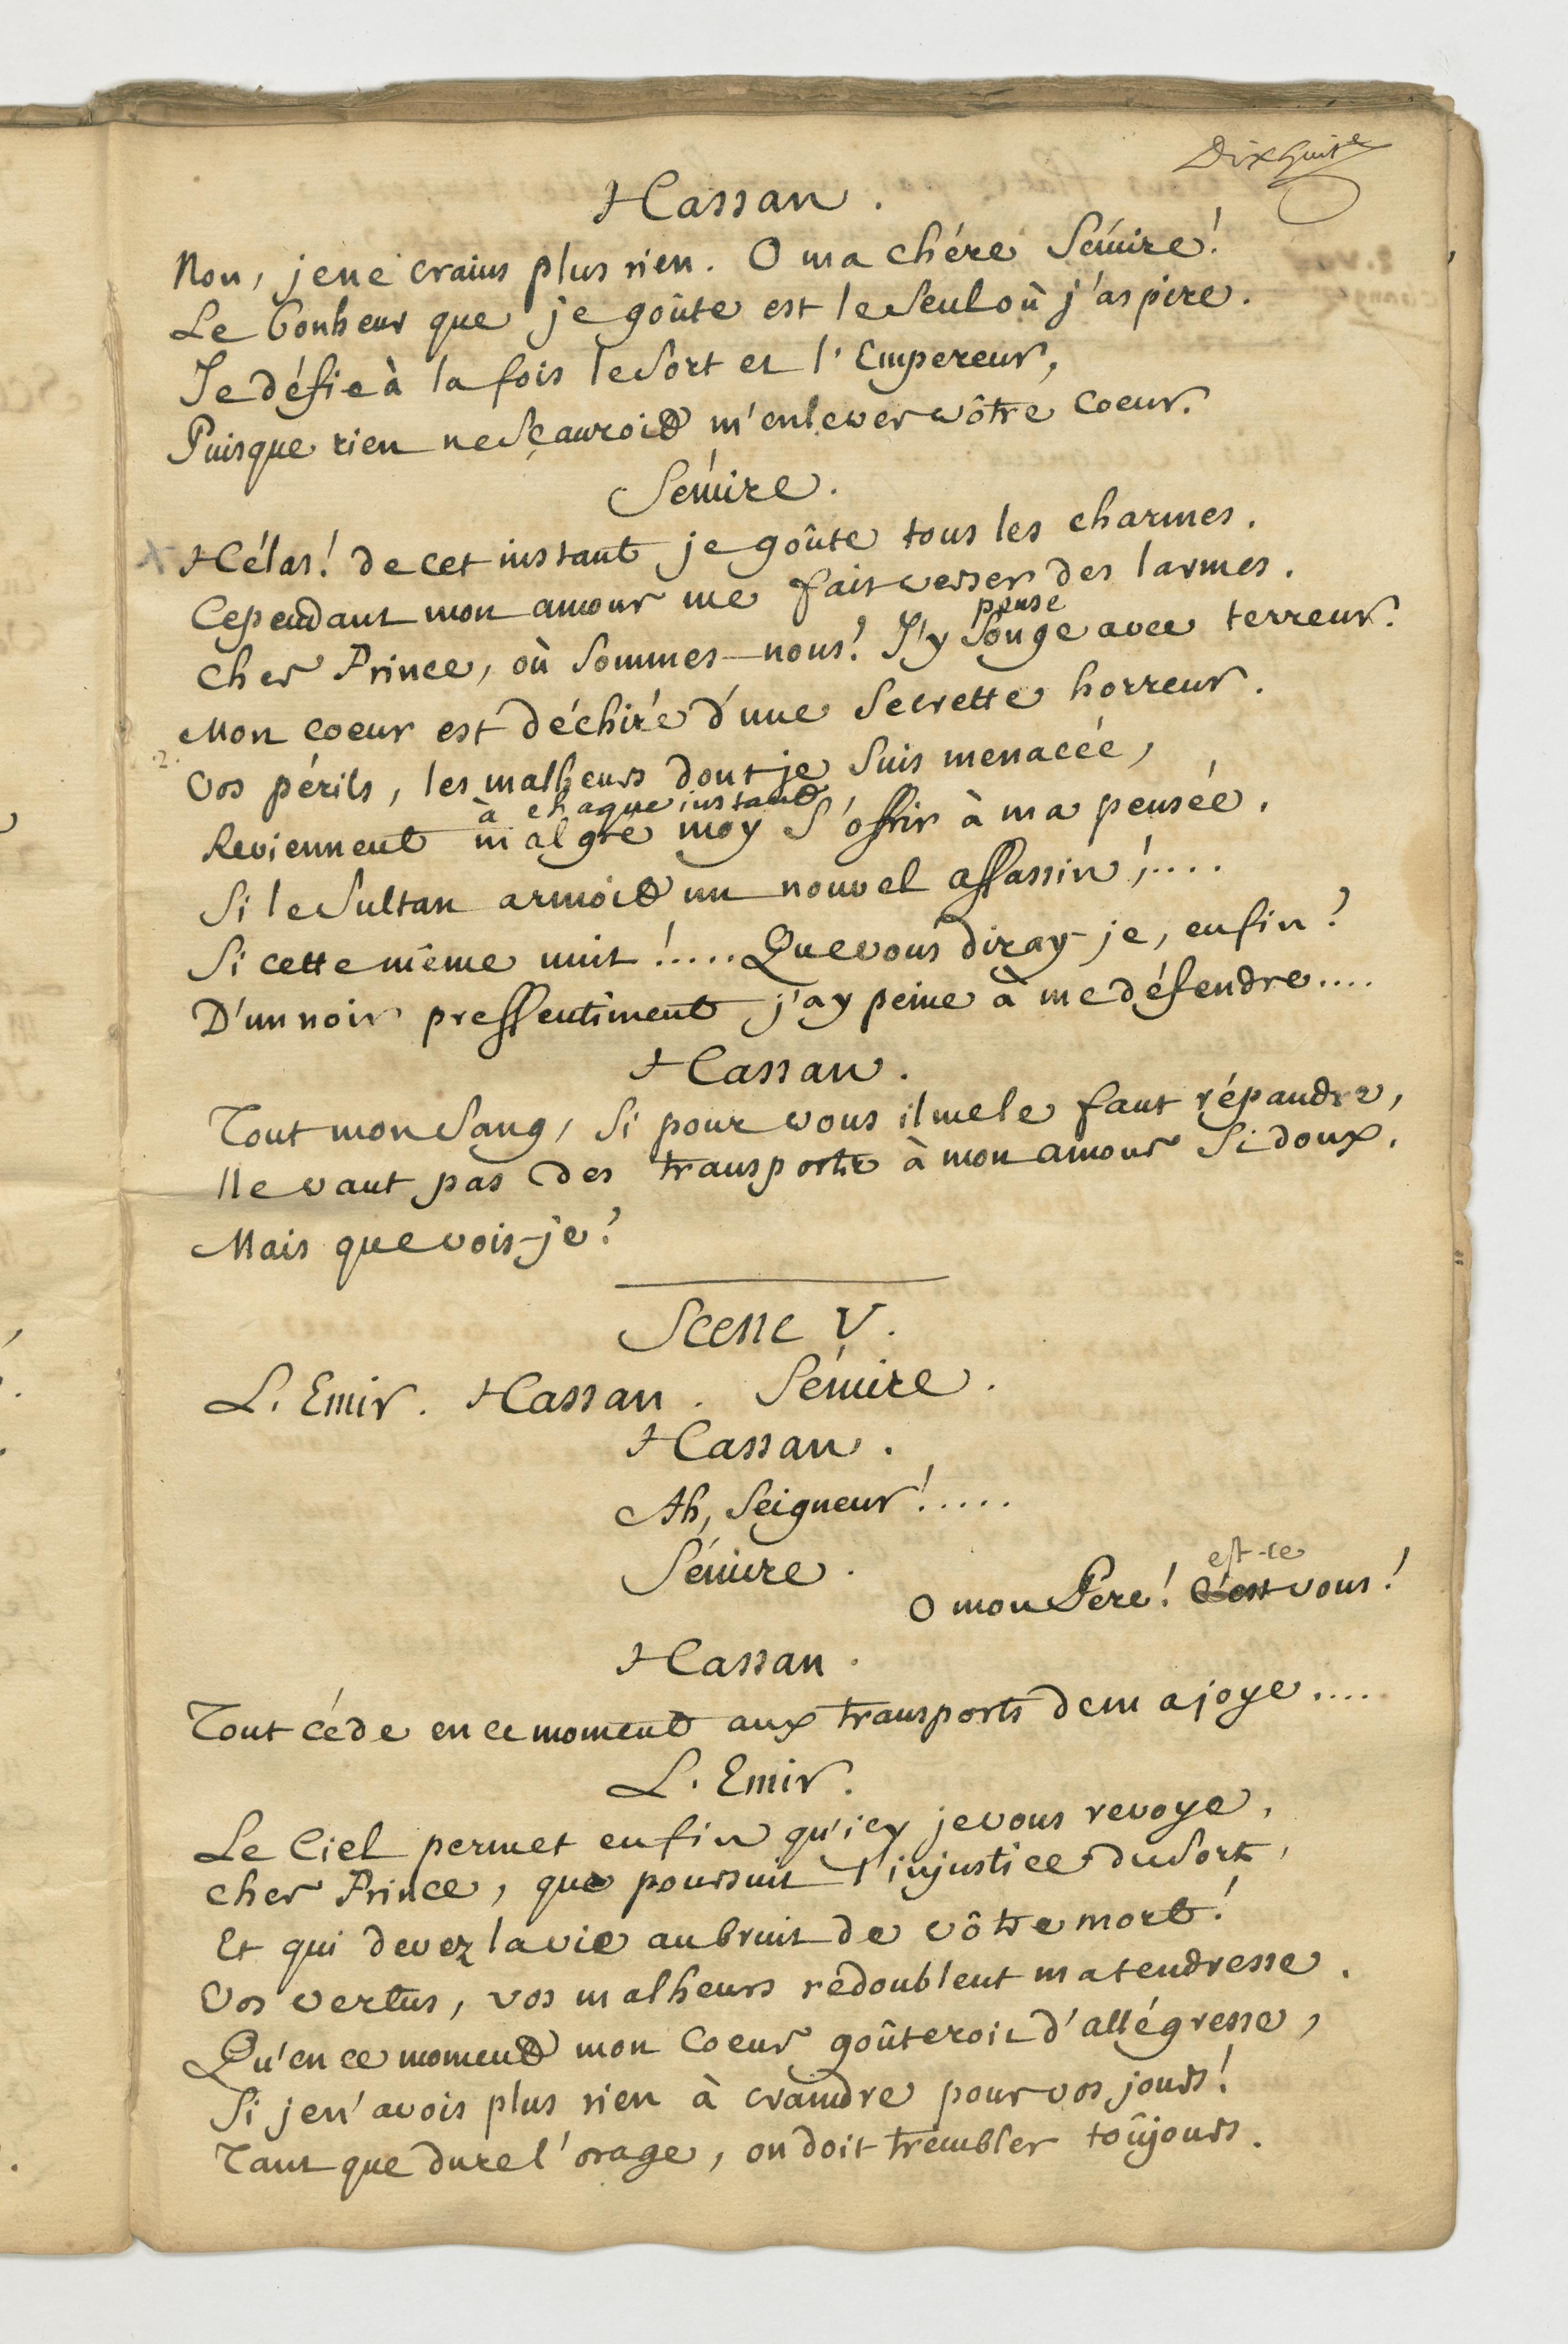 Dixhuit
Hassan.
Non, je ne crains plus rien. O ma chére Sémire!
Le bonheur que je goûte est le seul où j'aspire.
Je défie à la fois le sort et l'Empereur,
Puisque rien ne sçauroit m'enlever vôtre coeur.
Sémire.
Hélas! de cet instant je goûte tous les charmes.
Cependant mon amour me fait verser des larmes.
pense
Cher Prince, où sommes-nous! J'y songe avec terreur.
Mon coeur est déchiré d'une secrette horreur.
2.
Vos périls, les malheurs dont je suis menacée,
à chaque instant
Reviennent malgré moy s'offrir à ma pensée.
Si le Sultan armoit un nouvel assassin!....
Si cette même nuit!.... Que vous diray-je, enfin?
D'un noir pressentiment j'ay peine à me défendre....
Hassan.
Tout mon sang, si pour vous il me le faut répandre,
Ne vaut pas des transports à mon amour si doux.
Mais que vois-je?
Scene V.
L'Emir. Hassan. Sémire.
Hassan.
Ah, Seigneur!.....
Sémire.
est-ce
O mon Pere! c'est vous!
Hassan.
Tout céde en ce moment aux transports de ma joye....
L'Emir.
Le Ciel permet enfin qu'icy je vous revoye,
Cher Prince, que poursuit l'injustice du sort,
Et qui devez la vie au bruit de vôtre mort!
Vos vertus, vos malheurs redoublent ma tendresse.
Qu'en ce moment mon coeur goûteroit d'allégresse,
Si je n'avois plus rien à craindre pour vos jours!
Tant que dure l'orage, on doit trembler toûjours.